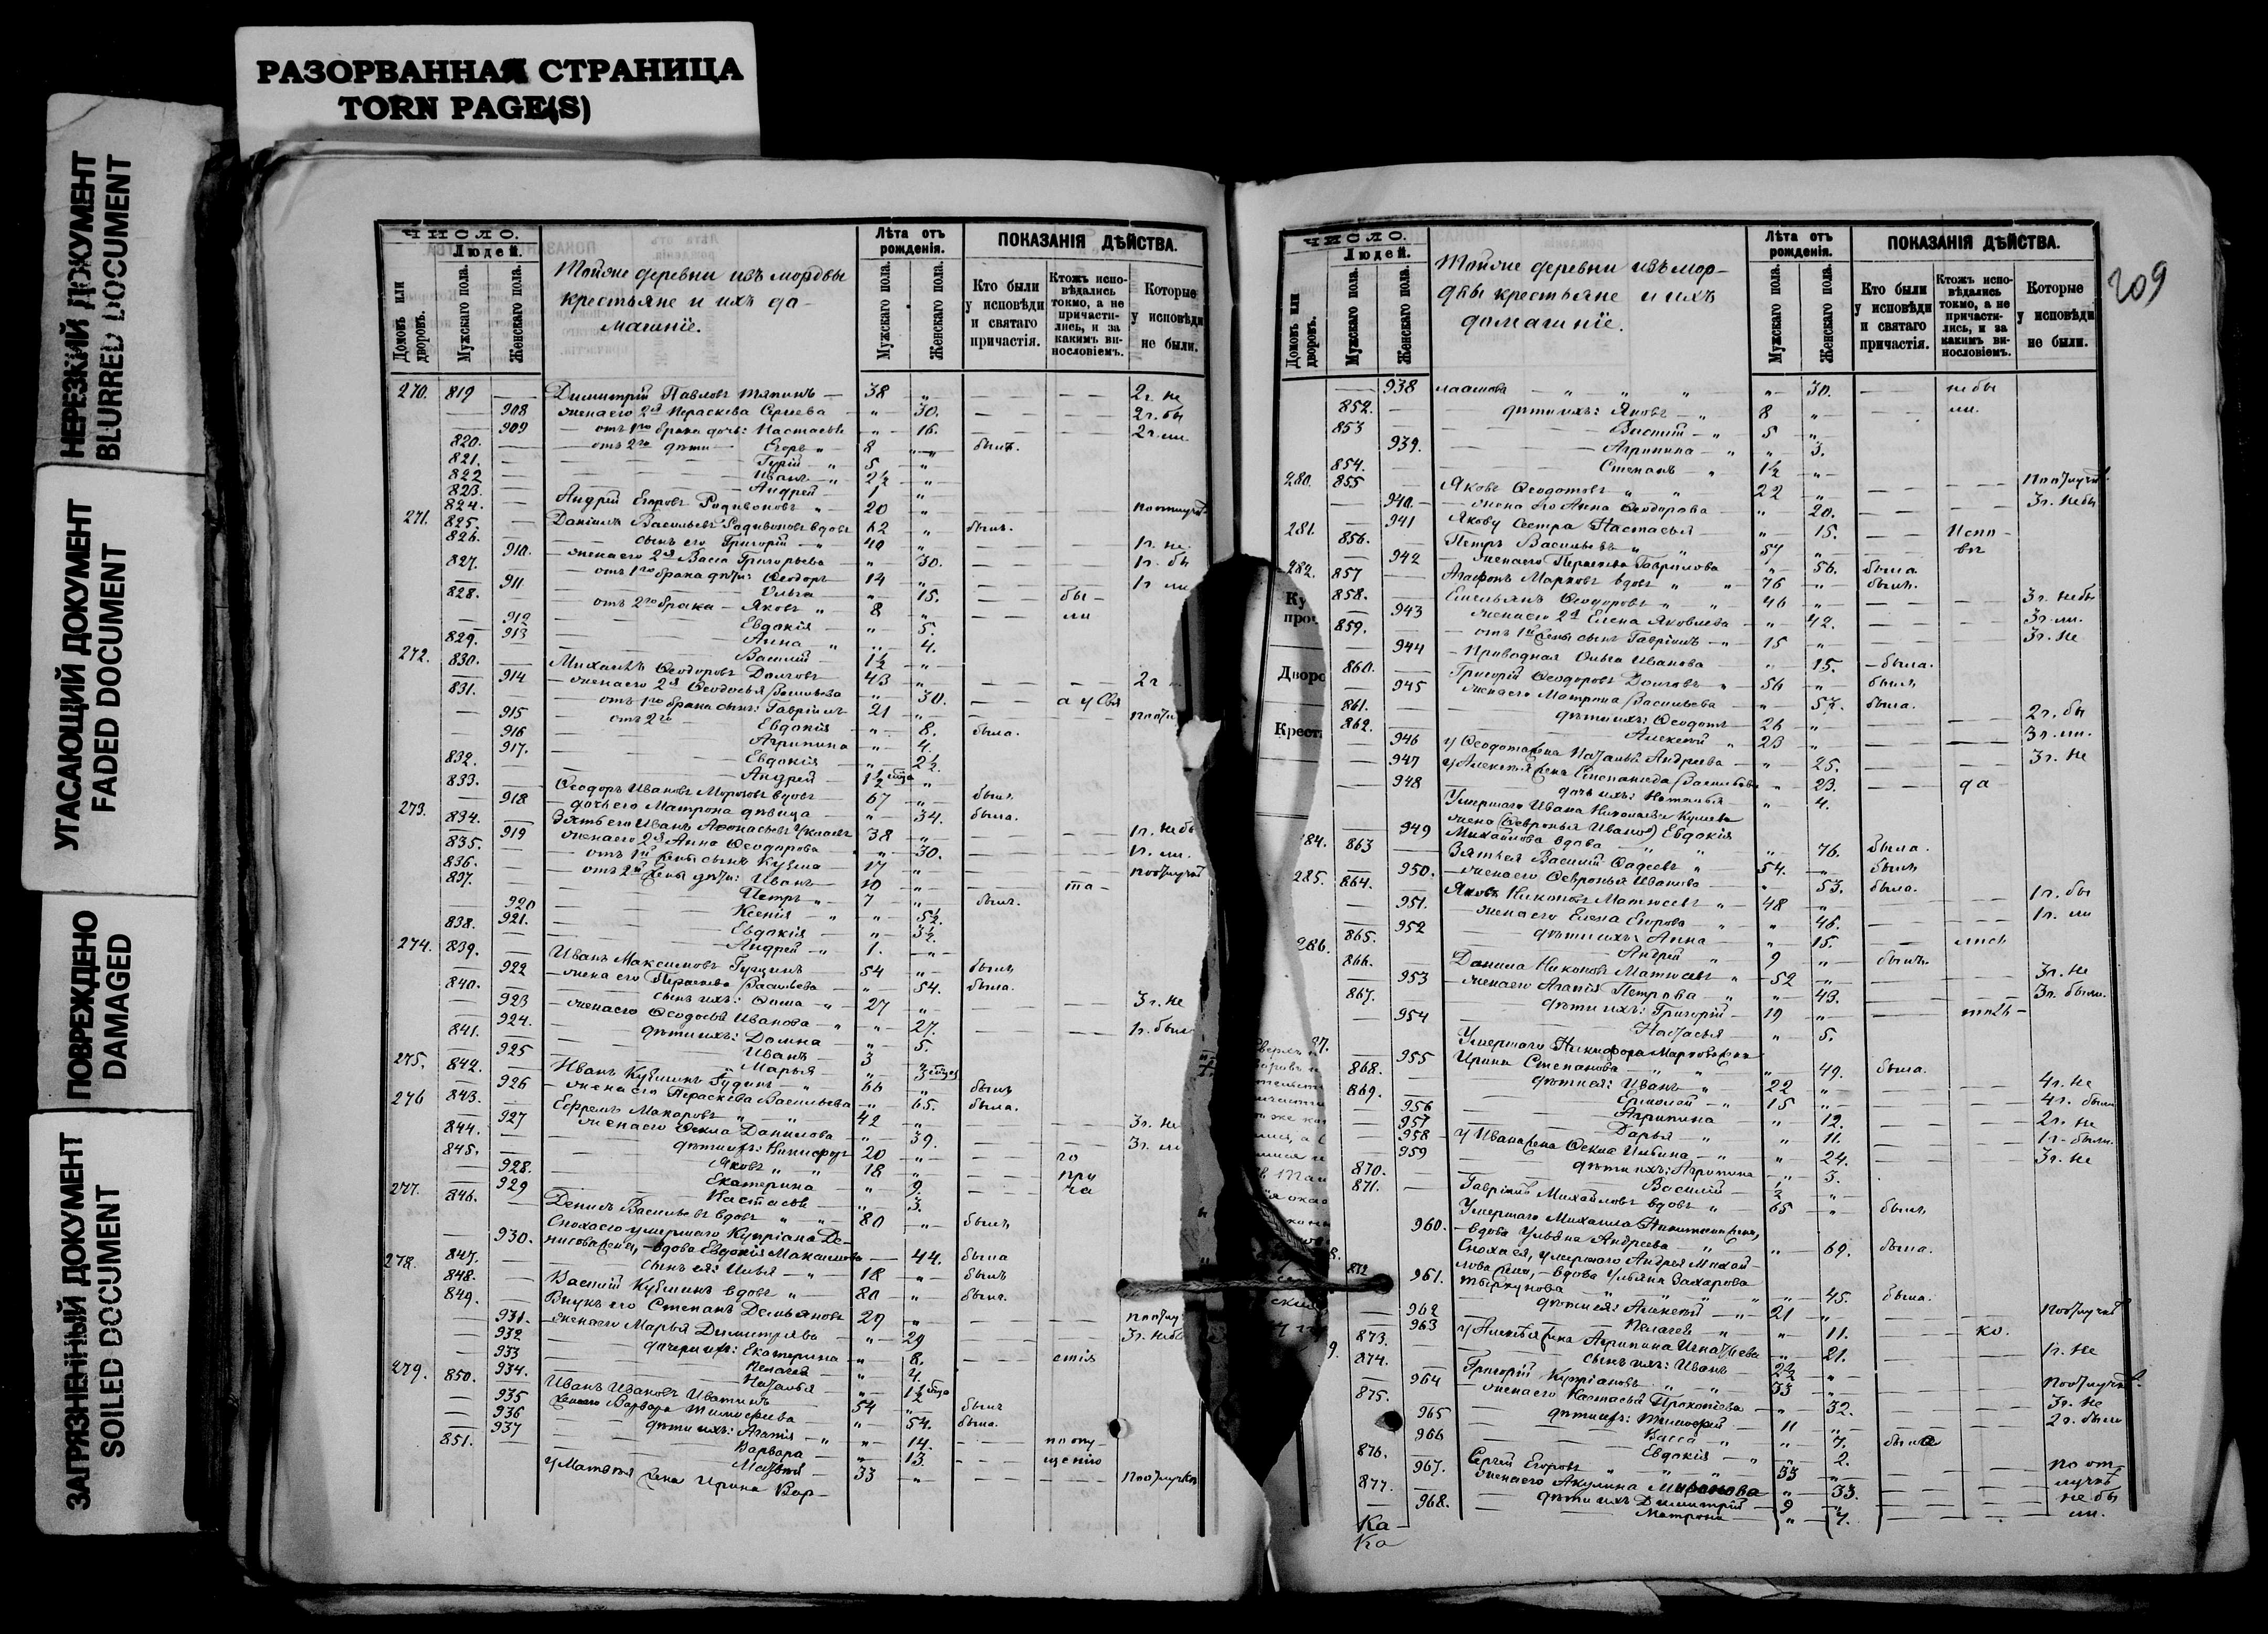 РАЗОРВАННАЯ СТРАНИЦА
TORN PAGE(S)
НЕРЕЗКИЙ ДОКУМЕНТ
BLURRED DOCUMENT
УГАСАЮЩИЙ ДОКУМЕНТ
FADED DOCUMENT
ПОВРЕЖДЕНО
DAMAGED
ЗАГРЯЗНЕННЫЙ ДОКУМЕНТ
SOILED DOCUMENT
ЧИСЛО.
Людей.
Домовъ или дворовъ.
Мужскаго пола.
Женскаго пола.
Тойже деревни изъ мордвы
крестьяне и ихъ до-
машніе.
Лѣта отъ рожденія.
Мужскаго пола.
Женскаго пола.
ПОКАЗАНІЯ ДѢЙСТВА.
Кто были у исповѣди и святаго причастія.
Ктожъ испо-вѣдались токмо, а не причасти-лись, и за какимъ ви-нословіемъ.
Которые у исповѣди не были.
270. 819 Димитрій Павловъ 38 2г. не
908 жена его 2я Параскева Сергѣева 30. 2г. бы
909 отъ 1го брака дочь: Настасья 16. 2г. ли
820. отъ 2го дѣти Егоръ 8 былъ.
821. Гурій 5
822 Иванъ 2½
823. Андрей 1
824. Андрей Егоровъ Родивоновъ 20
271. 825. Даніилъ Васильевъ Родивоновъ вдовъ 62 былъ.
826. сынъ его Григорій 40 1г. не
910. жена его 2я Васса Григорьева 30. 1г. бы
827. отъ 1го брака дѣти: Ѳеодоръ 14 1г. ли
911 Ольга 15. бы-
828. отъ 2го брака Яковъ 8 ли
912 Евдокія 5.
913 Анна 4.
829. Василій 1½
272. 830. Михаилъ Ѳеодоровъ Долговъ 43 2г
914 жена его 2я Ѳеодосья Васильева 30.
831. отъ 1го брака сынъ: Гавріилъ 21
915 отъ 2го Евдокія 8. была.
916 Агрипина 4.
917. Евдокія 2½.
832. Андрей 1½
833. Ѳеодоръ Ивановъ Морозовъ вдовъ 67 былъ
918 дочь его Матрона дѣвица 34. была.
273. 834. Зять его Иванъ Аѳонасьевъ 38 1г. не бы
919 жена его 2я Анна Ѳеодорова 30. 1г. ли.
835. отъ 1й жены сынъ Кузьма 17
836. отъ 2й жены дѣти: Иванъ 10 та-
837. Петръ 7 былъ.
920 Ксенія 5½.
921. Евдокія 3½.
838. Андрей 1.
274. 839. Иванъ Максимовъ 54 былъ
922 жена его Параскева Васильева 54. была.
840. сынъ ихъ: Ѳома 27 3г. не
923 жена его Ѳеодосья Иванова 27. 1г. был
924. дѣти ихъ: Домна 5.
841. Иванъ 3
925 Марья
275. 842. Иванъ Кузьминъ 66 былъ
926 жена его Параскева Васильева 65. была.
276 843. Ефремъ Макаровъ 42 3г. не
927 жена его Ѳекла Данилова 39. 3г. ли
844. дѣти ихъ: Никифоръ 20 го
845. Яковъ 18 при
928. Екатерина 9. ча
929 Настасья 3.
277. 846. Денисъ Васильевъ вдовъ 80 былъ
Сноха его умершаго Купріана Де-
930. нисова жена, вдова Евдокія Максимова 44. была
847. сынъ ея: Илья 18 былъ
278. 848. Василій Кузьминъ вдовъ 80 былъ.
849. Внукъ его Степанъ Демьяновъ 29
931. жена его Марья Димитріева 29 3г. не бы
932 дочери ихъ: Екатерина 8. стія
933 Пелагея 4.
934. Наталья 1½
279. 850. Иванъ Ивановъ 54 былъ
935 жена его Варвара Тимоѳеева 54. была.
936 дѣти ихъ: Агапія 14. по опу-
937 Варвара 13. щенію
851. Матвѣй 33
у Матвѣя жена Ирина Вар-
ЧИСЛО.
Людей.
Домовъ или дворовъ.
Мужскаго пола.
Женскаго пола.
Тойже деревни изъ мор-
двы крестьяне и ихъ
домашніе.
Лѣта отъ рожденія.
Мужскаго пола.
Женскаго пола.
ПОКАЗАНІЯ ДѢЙСТВА.
Кто были у исповѣди и святаго причастія.
Ктожъ испо-вѣдались токмо, а не причасти-лись, и за какимъ ви-нословіемъ.
Которые у исповѣди не были.
209
938 лаамова 30. не бы
852. дѣти ихъ: Яковъ 8 ли.
853 Василій 5
939. Агрипина 3.
854. Степанъ 1½
280. 855 Яковъ Ѳеодотовъ 22
940. жена его Анна Ѳеодорова 20. 3г. не бы
941 Якову сестра Настасья 15. Испо-
281. 856. Петръ Васильевъ 57 вѣ
942 жена его Параскева Гаврилова 56. была
282. 857 Агаѳонъ Марковъ вдовъ 76 былъ.
858. Емельянъ Ѳеодоровъ 46 3г. не бы
943 жена его 2я Елена Яковлева 42. 3г. ли.
859. отъ 1й жены сынъ Гавріилъ 15 3г. не
944 Приводная Ольга Иванова 15. была.
860. Григорій Ѳеодоровъ Долговъ 56 былъ
945 жена его Матрона Васильева 53. была.
861. дѣти ихъ: Ѳеодотъ 26 2г. бы
862. Алексѣй 23 3г. ли.
946 у Ѳеодота жена Наталья Андреева 25. 3г. не
947 у Алексѣя жена Степанида Васильева 23. да
948 дочь ихъ: Наталья 4.
Умершаго Ивана Николаева
жена (Ѳевронья Иванов) Евдокія
949 Михайлова вдова 76. была.
284. 863 Зять ея Василій Ѳадеевъ 54. былъ
950. жена его Ѳевронья Иванова 53. была.
285. 864. Яковъ Никоновъ 48 1г. бы
951. жена его Елена Егорова 46. 1г. ли
952 дѣти ихъ: Анна 15. лись
865. Андрей 9 былъ.
286. 866. Данила Никоновъ 52 3г. не
953 жена его Агапія Петрова 43. 3г. были.
867. дѣти ихъ: Григорій 19
954 Настасья 5.
Умершаго Никифора Маркова жена
955 Ирина Степанова 49. была.
868. дѣти ея: Иванъ 22 4г. не
869. Ермолай 15 4г. были
956 Агрипина 12. 2г. не
957 Дарья 11. 1г. были.
958 у Ивана жена Ѳекла Ильина 24. 3г. не
959 дѣти ихъ: Агрипина 3.
870. Василій
871. Гавріилъ Михайловъ вдовъ 65 былъ
Умершаго Михаила Никитина жена,
960. вдова Ульяна Андреева 69. была.
Сноха ея, умершаго Андрея Михай-
лова жена, вдова Ульяна Захарова
961. 45. была.
872 дѣти ея: Алексѣй 21
962 Пелагея 11. ко.
963 у Алексѣя жена Агрипина Игнатьева 21. 1г. не
873. сынъ ихъ: Иванъ
874. Григорій Купріановъ 33
964 жена его Настасья Прокопіева 32. 3г. не
875. дѣти ихъ: Тимоѳей 11 2г. были
965 Васса 7. была
966 Евдокія 2.
876. Сергѣй Егоровъ 33 по от
967. жена его Акулина Миронова 33. лучкѣ
877. дѣти ихъ Димитрій 9 не бы
968. Матрона 7. ли.
Ка
Ка
Дворо
Крест